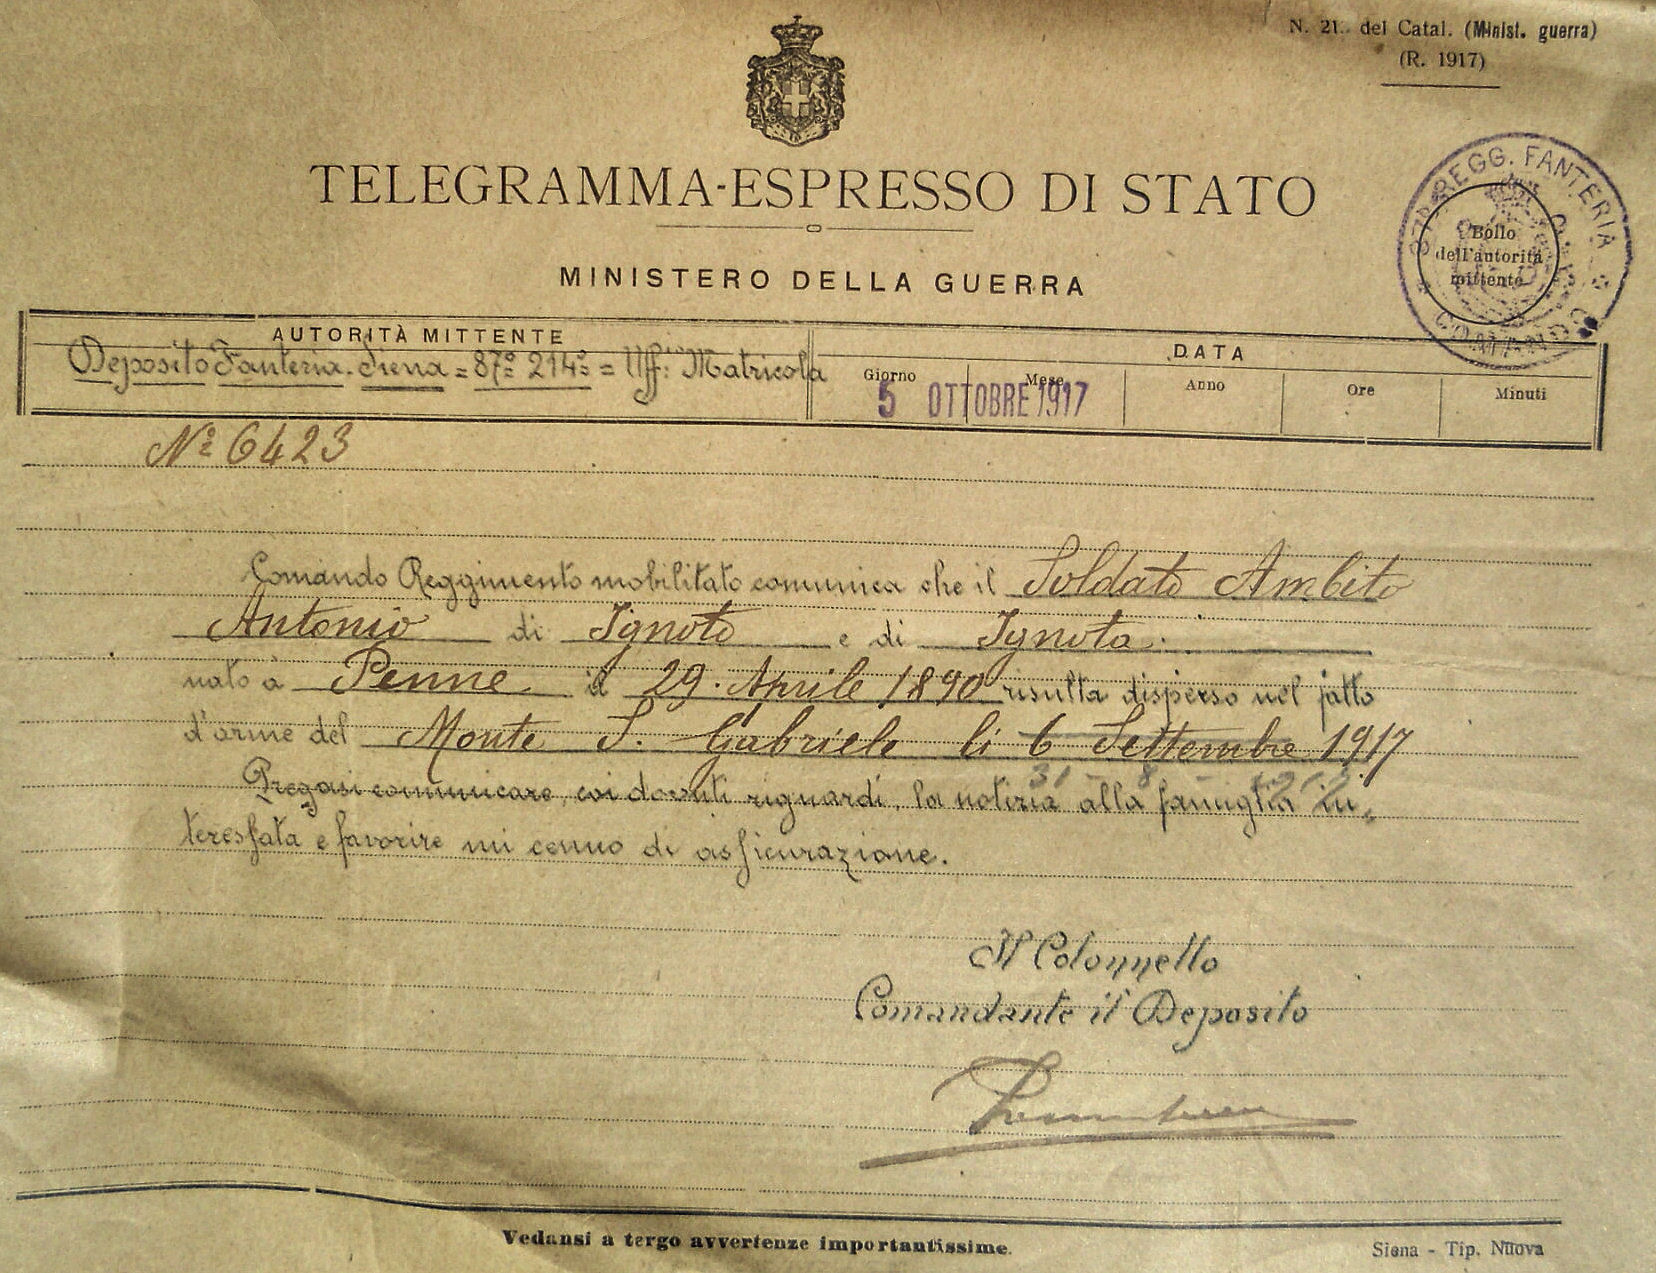 N. 21. del Catal. (Minist. guerra)
(R. 1917)
TELEGRAMMA-ESPRESSO DI STATO
87° REGG. FANTERIA
COMANDO
Bollo
dell'autorità
mittente
MINISTERO DELLA GUERRA
AUTORITÀ MITTENTE
DATA
Deposito Fanteria. Siena = 87° 214° = Uff: Matricola
Giorno Mese Anno Ore Minuti
5 OTTOBRE 1917
N° 6423
Comando Reggimento mobilitato comunica che il Soldato Ambito
Antonio di Ignoto e di Ignota.
nato a Penne il 29. Aprile 1890 risulta disperso nel fatto
d'arme del Monte S. Gabriele li 6 Settembre 1917
31 - 8 -
Pregasi comunicare, coi dovuti riguardi, la notizia alla famiglia in„
teressata e favorire un cenno di assicurazione.
Il Colonnello
Comandante il Deposito
Vedansi a tergo avvertenze importantissime.
Siena - Tip. Nuova